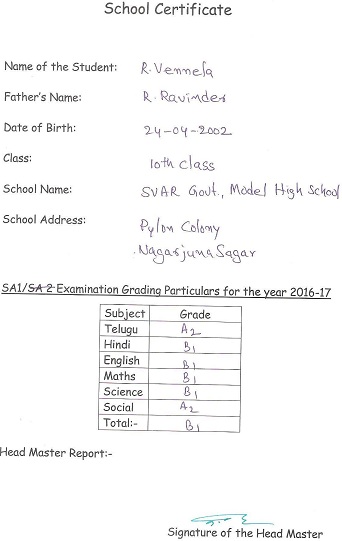 School Certificate
Name of the Student: R. Vennela
Father's Name: R. Ravinder
Date of Birth: 24-04-2002
Class: 10th class
School Name: SVAR Govt., Model High School
School Address: Pylon Colony
Nagarjuna Sagar
SA1/SA-2 Examination Grading Particulars for the year 2016-17
Subject Grade
Telugu A2
Hindi B1
English B1
Maths B1
Science B1
Social A2
Total:- B1
Head Master Report:-
Signature of the Head Master